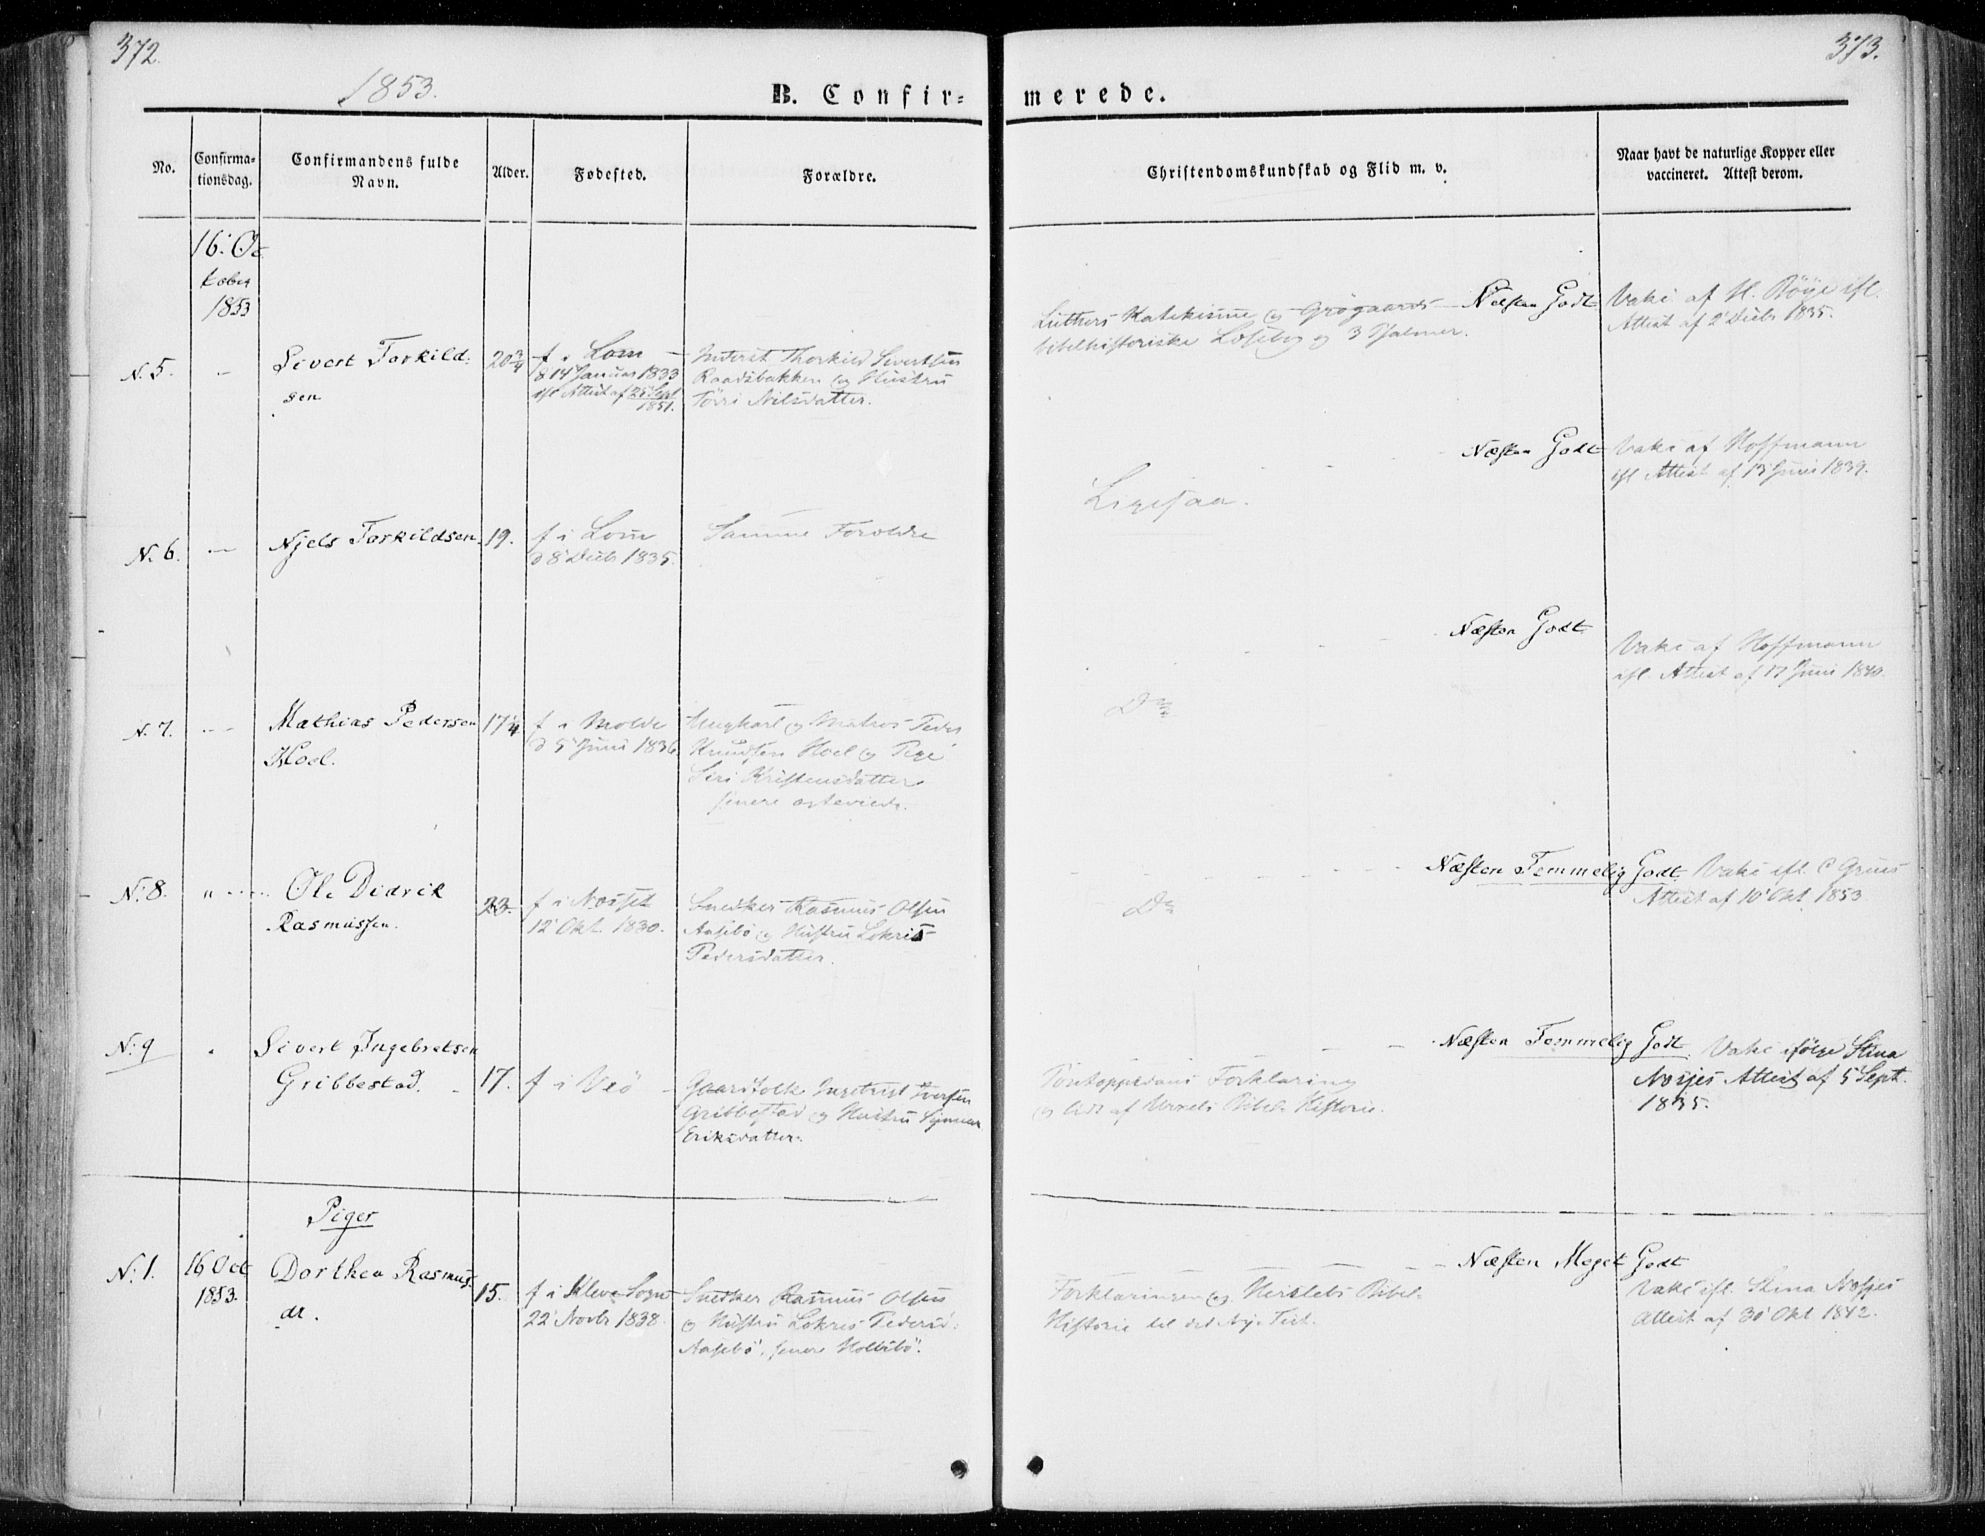 372.
373.
1853.
B. Confir-
merede.
No.
Confirma-
tionsdag.
Confirmandens fulde
Navn.
Alder.
Fødested.
Forældre.
Christendomskundskab og Flid m. v.
Naar havt de naturlige Kopper eller
vaccineret. Attest derom.
16. Oc
tober
1853
N. 5.
Sivert Torkild-
sen
20 3/4
f. i Lom
14 Januar 1833
ifl Attest af 25 Sept
1851.
Inderst Thorkild Sivertsen
Raadsbakken og Hustru
Nilsdatter.
Luthers Katekisme og Grøgaards
bibelhistoriske Læsebog og 3 Psalmer.
Næsten Godt
Vakc af H. Böye ifl.
Attest af 2 Decbr 1835.
N. 6.
Njels Torkildsen
19.
f i Lom
d 8 Decbr 1835.
Samme Forældre
Ligesaa.
Næsten Godt
Vakc af Hoffmann
ifl Attest af 13 Juni 1839.
N. 7.
Mathias Pedersen
Hoel.
17 1/4
f i Molde
d 5 Juni 1836
Ungkarl og Matros Peder
Knudsen Hoel og Pige
Siri Kristensdatter
senere ægteviede.
Do
Næsten Godt
Vakc af Hoffmann
ifl. Attest af 17 Juni 1840.
N. 8.
Ole Didrik
Rasmussen.
23.
f i Næsset
12 Okt. 1830.
Snedker Rasmus Olsen
Aasebö og Hustru Lokris
Pedersdatter.
Do
Næsten Temmelig Godt
Vakc ifl. C Grüus
Attest af 10 Okt 1853
N. 9
Sivert Ingebretsen
Gribbestad.
17.
f i Veö
Gaardfolk Ingebrigt Iversen
Gribbestad og Hustru
Eriksdatter.
Pontoppidans Forklaring
og lidt af Bibel Historie.
Næsten Temmelig Godt.
Vakc ifølge Stina
Nosjes Attest af 5 Sept.
1835.
Piger
N. 1.
16 Oct
1853.
Dorthea Rasmus-
dr.
15.
f i Kleve Sogn
22 Novbr 1838.
Snedker Rasmus Olsen
og Hustru Lokris Pedersd.
Aasebö, senere
Forklaringen og Herslebs Bibel-
Historie til det Ny Test.
Næsten Meget Godt
Vakc ifl. Stina Nosjes
Attest af 30 Okt 1842.